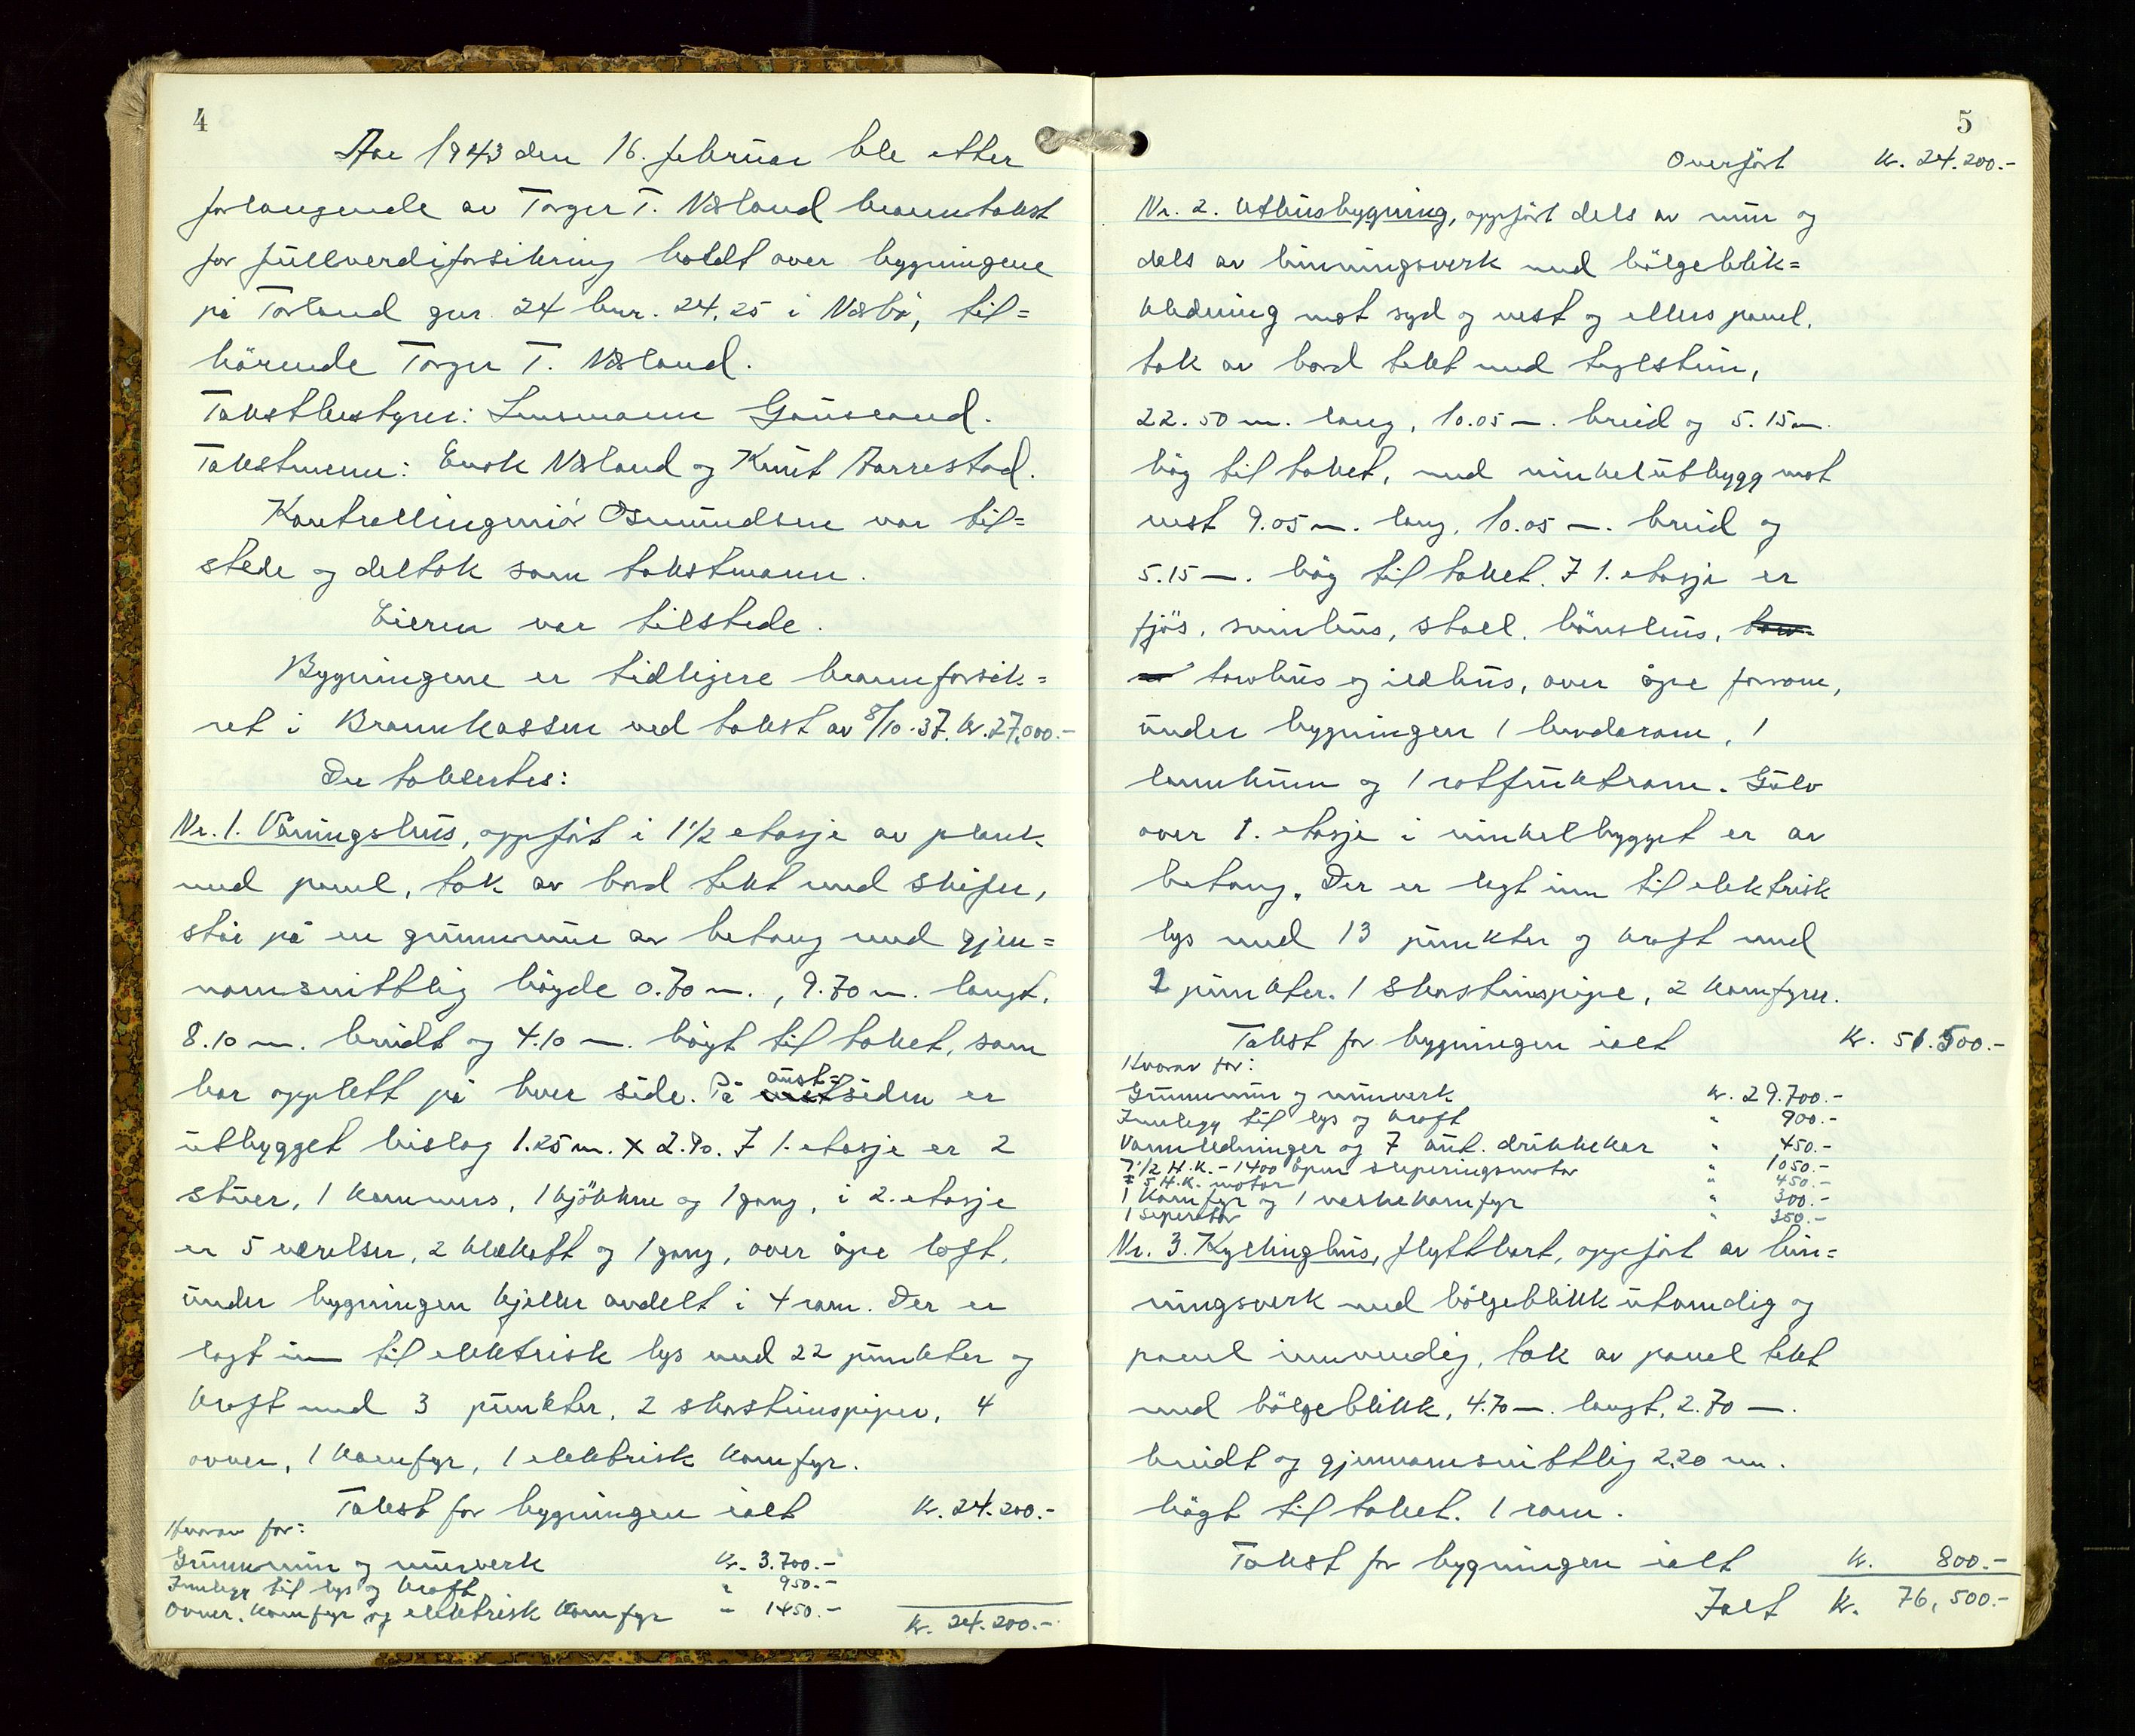 4
Aar 1943 den 16. februar ble etter
forlangende av Torger T. Næland branntakst
for fullverdiforsikring holdt over bygningene
på Torland gnr. 24 bnr. 24,25 i Nærbø, til=
hörende Torger T. Næland.
Takstbestyrer: Lensmann Gausland.
Takstmenn: Enok Næland og Knut Aarrestad.
Kontrollingeniör Osmundsen var til=
stede og deltok som takstmann.
Eieren var tilstede.
Bygningene er tidligere brannforsik=
ret i Brannkassen ved takst av 8/10.37. kr. 27,000.-
Der taksertes:
Nr. 1. Våningshus, oppfört i 1 1/2 etasje av plank
med panel, tak av bord tekt med skifer,
står på en grunnmur av betong med gjen=
nomsnittlig höyde 0.70 m., 9.70 m. langt,
8.10 m. breidt og 4.10 m. högt til taket, som
har opplett på hver side. På aust=
siden er
utbygget bislag 1.25 m. x 2.90. I 1. etasje er 2
stuer, 1 kammers, 1 kjökken og 1 gang, i 2. etasje
er 5 værelser, 2 klekott og 1 gang, over åpe loft,
under bygningen kjeller avdelt i 4 rom. Der er
lagt inn til elektrisk lys med 22 punkter og
kraft med 3 punkter, 2 skorsteinspiper, 4
ovner, 1 komfyr, 1 elektrisk komfyr.
Takst for bygningen ialt kr. 24.200.-
Hvorav for:
Grunnmur og murverk kr. 3.700.-
Innlegg til lys og kraft " 950.-
Ovner, komfyr og elektrisk komfyr - 1450.-
kr. 24.200.-
5
Overfört kr. 24.200.-
Nr. 2. Uthusbygning, oppfört dels av mur og
dels av binningsverk med bölgeblik=
kledning mot syd og vest og ellers panel,
tak av bord tekt med teglstein,
22.50 m. lang, 10.05 m. breid og 5.15 m.
hög til taket, med vinkelutbygg mot
vest 9.05 m. lang, 10.05 m. breid og
5.15 m. hög til taket. I 1. etasje er
fjös, svinhus, stall, hönsehus,
torvhus og ildhus, over åpe forrom,
under bygningen 1 landarom, 1
lannkum og 1 rotfruktrom. Golv
over 1. etasje i vinkelbygget er av
betong. Der er lagt inn til elektrisk
lys med 13 punkter og kraft med
2 punkter. 1 skorsteinspipe, 2 komfyrer.
Takst for bygningen ialt kr. 51.500.-
Hvorav for:
Grunnmur og murverk kr. 29.700.-
Innlegg til lys og kraft " 900.-
Vannledninger og 7 aut. drikkekar " 450.-
7 1/2 H.K. - 1400 åpen sleperingsmotor " 1050.-
5 H.K. motor " 450.-
1 komfyr og 1 vaskekomfyr " 300.-
1 Seperator " 350.-
Nr. 3. Kyllinghus, flyttbart, oppfört av bin=
ningsverk med bölgeblikk utvendig og
panel innvendig, tak av panel tekt
med bölgeblikk, 4.70 m. langt, 2.70 m.
breidt og gjennomsnittlig 2.20 m.
högt til taket. 1 rom.
Takst for bygningen ialt kr. 800.-
Ialt kr. 76,500.-